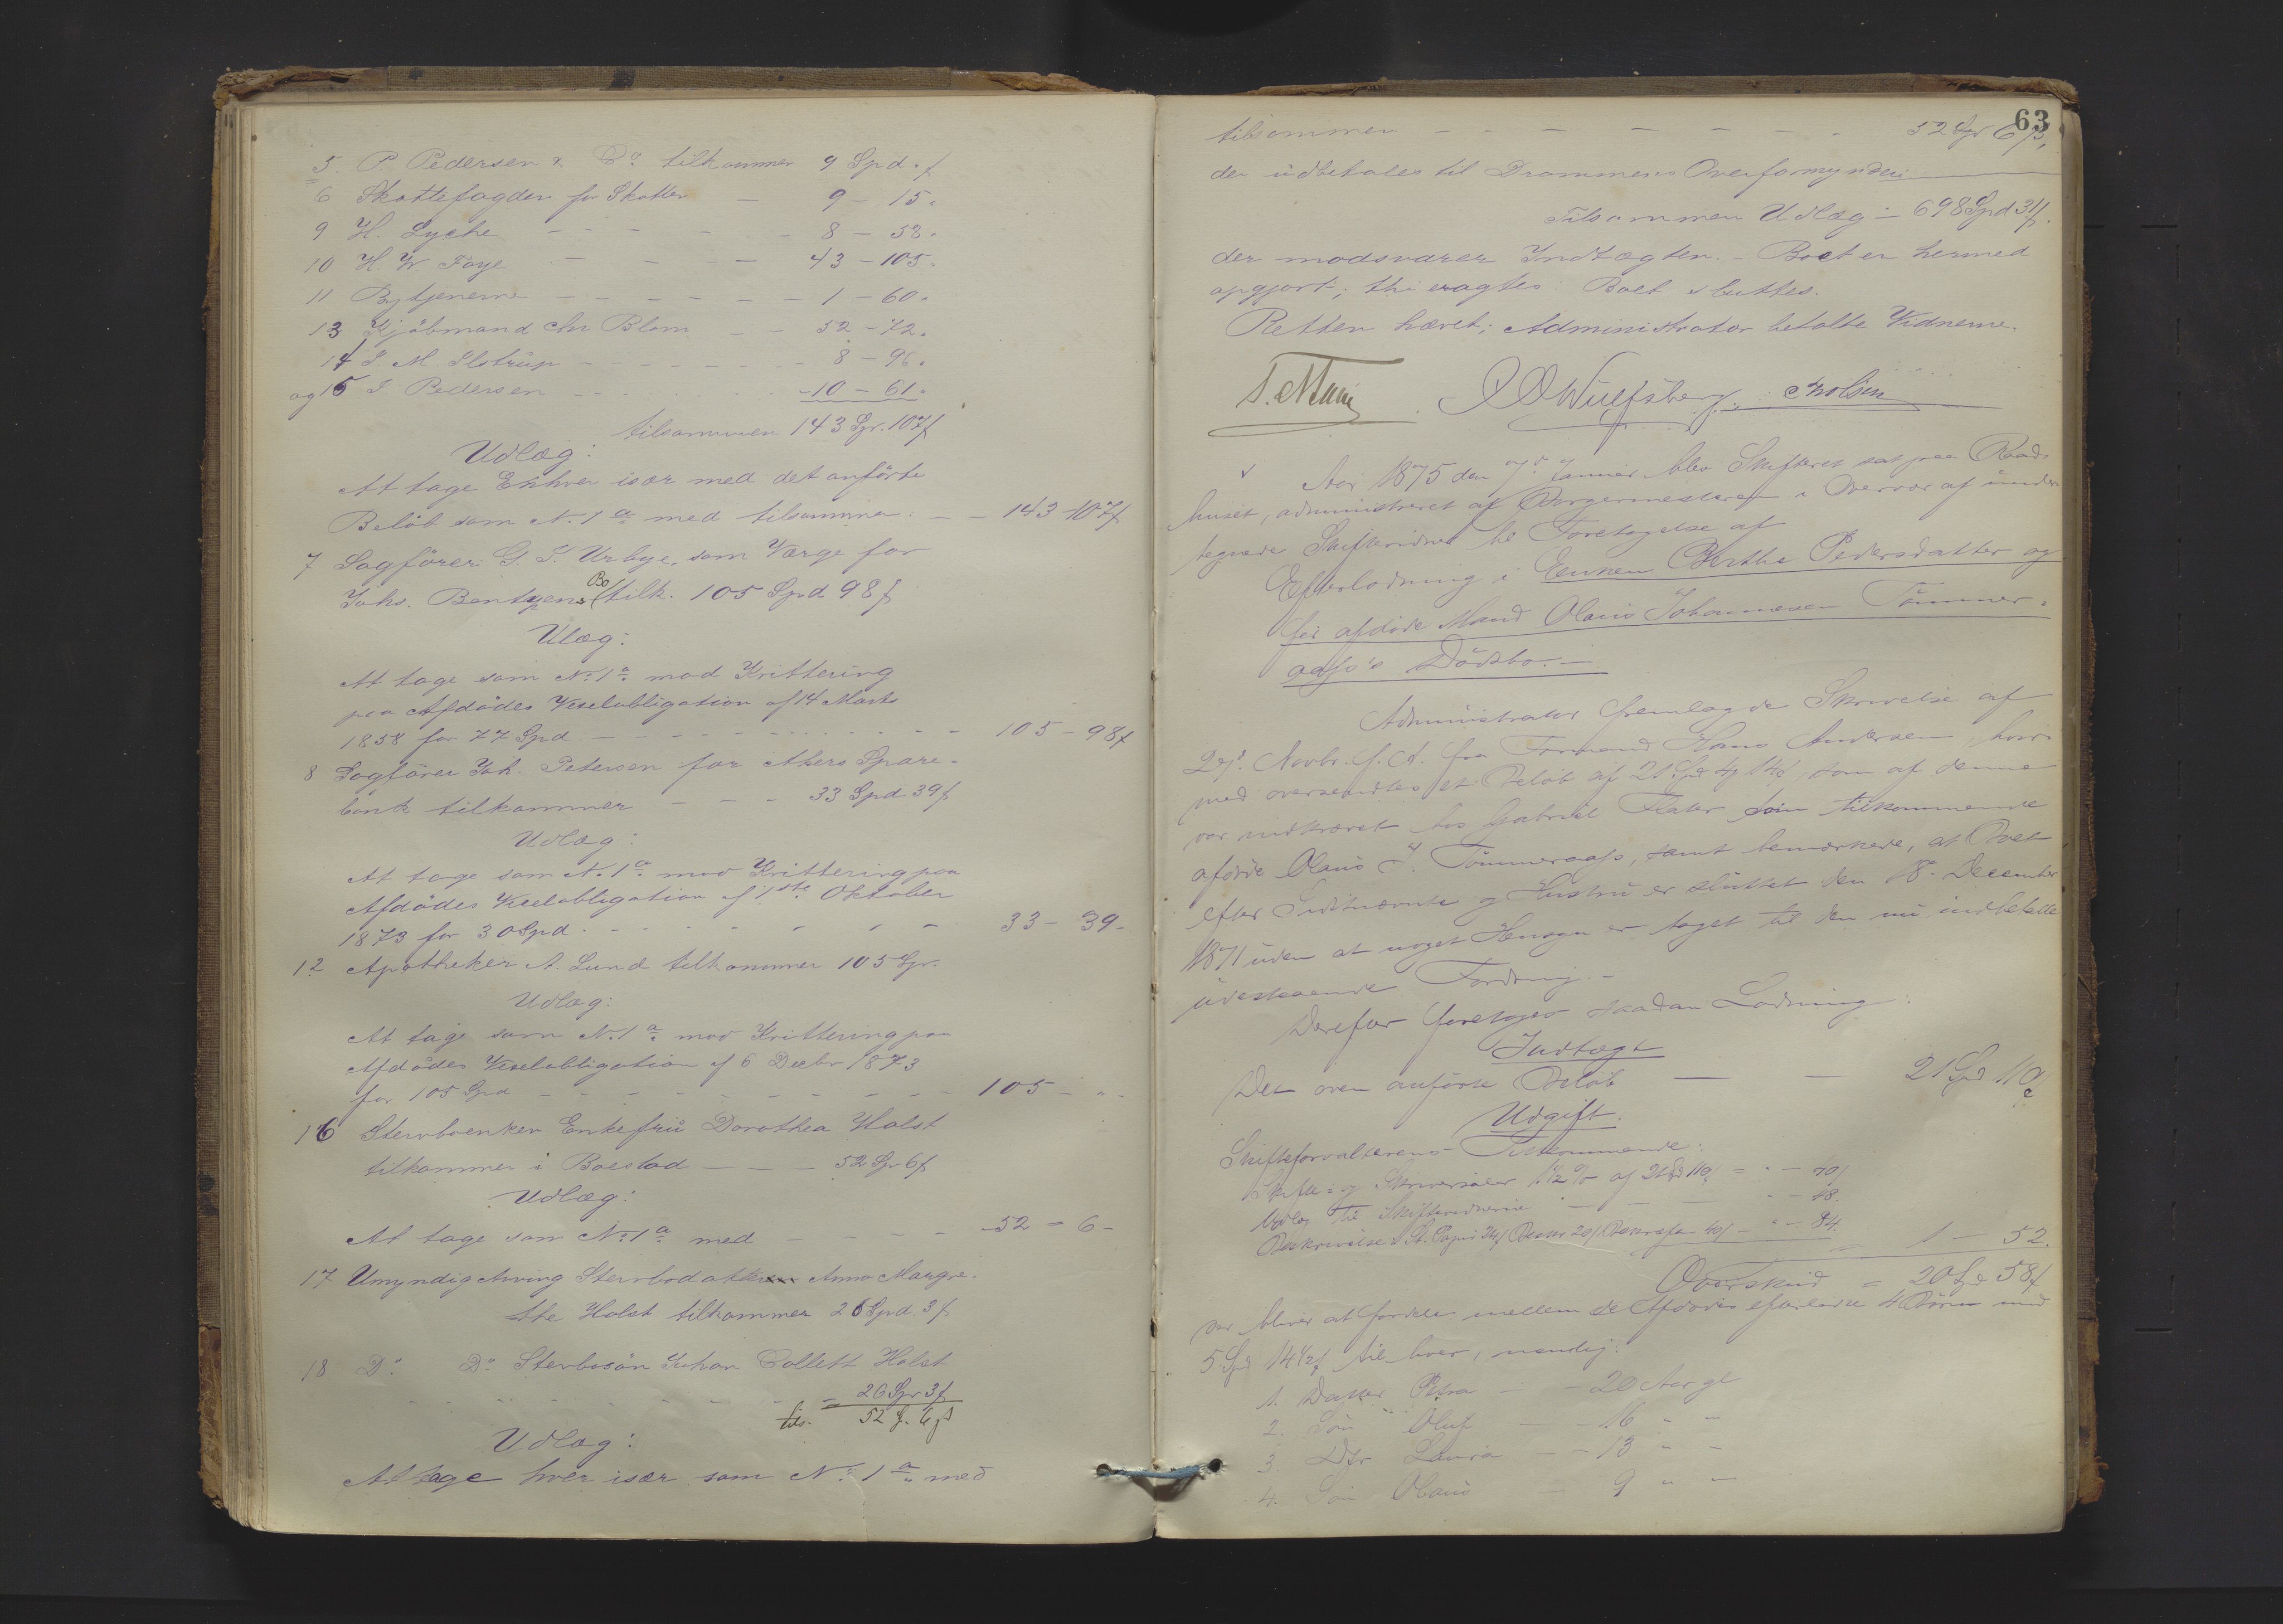 5. P Pedersen & Co tilkommer 9 Spd. "
6 Skattefogden for Skatter — 9 – 15 "
9 H. Lyche – – – – – 8 – 58 "
10 H. W Foye – – – – 43 – 105 "
11 Bytjenerne – – – – – – 1 – 60 "
13 Kjöbmand Chr Blom – – 52 – 72 "
14 S. M. Slotrup – – – – – – 8 – 96 "
og 15 I Pedersen – – – – – – 10 – 61 "
tilsammen 143 Spr. 107 ß
Udlæg:
At tage Enhver især med det anförte
Belöb som No 1 a med tilsammen – – 143 – 107 ß
7 Sagförer G. T. Urbye, som Værge for
Johs. Bentzens Bo tilk. 105 Spd 98 ß
Ulæg:
At tage som No 1 a mod Kvittering
paa Afdödes Vexelobligation af 14 Marts
1858 for 77 Spd – – – – – – – – 105 – 98 ß
8 Sagförer Joh. Petersen for Akers Spare-
bank tilkommer – – – 33 Spd 39 ß
Udlæg:
At tage som No 1 a mod Kvittering paa
Afdödes Vexelobligation af 1ste Oktober
1873 for 30 Spd. – – – – – – 33 – 39 –
12 Apotheker A. Lund tilkommer 105 Spr.
Udlæg:
At tage som No 1 a mod Kvittering paa
Afdödes Vexelobligation af 6 Decbr 1873
for 105 Spd – – – – – – – – 105 – " –
16 Stervboenken Enkefru Dorothea Holst
tilkommer i Boeslod – – – 52 Sp 6 ß
Udlæg:
At tage som No 1 a med – – – – 52 – 6 –
17 Umyndig Arving Stervbodatter Anna Margre-
the Holst tilkommer 26 Spd 3 ß
18 Do Do Stervbosön Johan Collett Holst
– – – – – – – = 26 Spr 3 ß
tils. 52 Sp. 6 ß
Udlæg:
At tage hver især som No 1 a med
63
tilsammen – – – – – – – 52 Spr 6 ß,
der udbetales til Drammens Overformynderi
Tilsammen Udlæg – 698 Spd 31 ß.
der modsvarer Indtægten. – Boet er hermed
opgjort; thi eragtes: Boet sluttes.
Retten hævet; Administrator betalte Vidnerne.
Wulfsberg. Olsen
Aar 1875 den 7de Januar blev Skifteret sat paa Raad-
huset, administreret af Borgermesteren i Overvær af under-
tegnede Skiftevidner til Foretagelse af
Efterlodning i Enken Berthe Pedersdatter og
før afdøde Mand Olaus Johannesen Tömmer-
aas's Dödsbo. –
Administrator fremlagde Skrivelse af
Novbr. f. A. fra Formand Hans Andersen hvor-
med oversendtes et Beløb af 21 Spd som af denne
var indkrævet hos Gabriel som tilkommende
afdøde Olaus J. Tömmeraas, samt bemærkede, at Boet
efter Sidstnævnte og Hustru er sluttet den 18. December
1871 uden at noget Hensyn er taget til den nu indbetalte
udestaaende Fordring. –
Derefter foretoges saadan Lodning:
Indtægt
Det oven anförte Belöb — — 21 Spd 110 ß
Udgift.
Skifteforvalterens Tilkommende:
Skifte- og Skriversalær 1 1/2 % af 21 Spd 110 ß = " – 40 ß
Udlæg til Skiftevidnerne – – – " – 48.
Beskrivelse: St. Papir 24 ß 20 ß 40 ß – " – 84.
1 – 52.
Overskud = 20 Spd 58 ß
der bliver at fordele mellem de Afdödes efterladte 4 Börn med
5 Spd 14 1/2 ß til hver, nemlig:
1. Datter Petra – – 20 Aar gl
2. Sön Oluf – 16 " –
3. Dtr Laura – – 13 " –
4. Sön Olaus – 9 " –